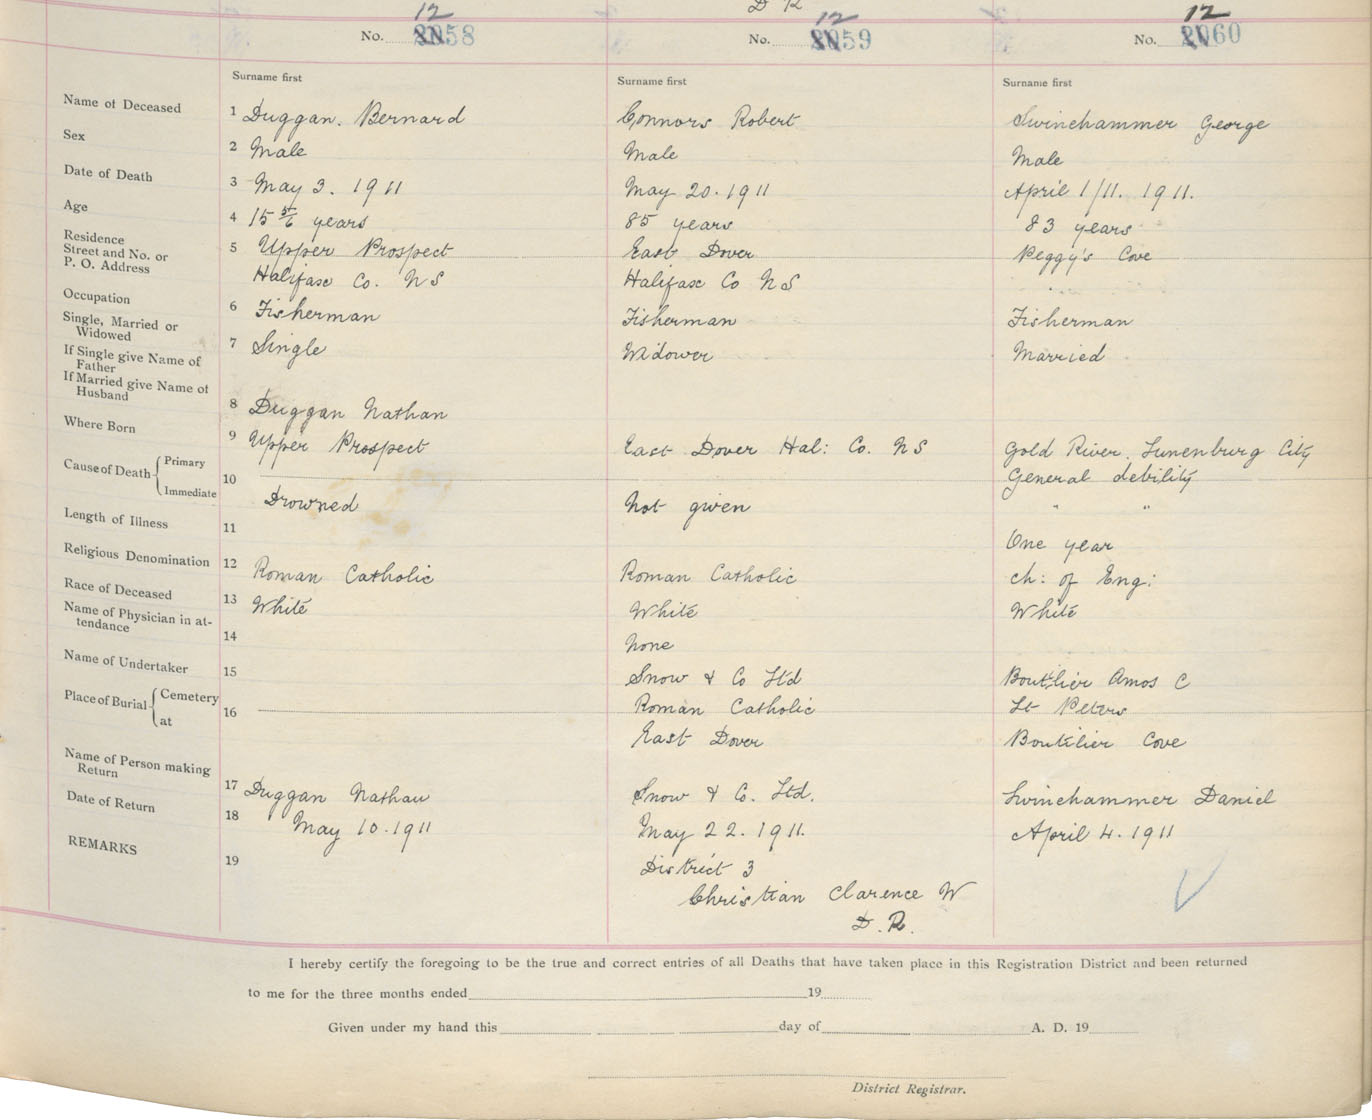 D R
12 12 12
No. 2058 No. 2059 No. 2060
Surname first Surname first Surname first
Name of Deceased 1 Duggan. Bernard Connors Robert Swinehammer George
Sex 2 Male Male Male
Date of Death 3 May 3. 1911 May 20. 1911 April 1/11. 1911.
Age 4 15 5/6 years 85 years 83 years
Residence
Street and No. or 5 Upper Prospect East Dover Peggy's Cove
P. O. Address Halifax Co. N S Halifax Co N S
Occupation 6 Fisherman Fisherman Fisherman
Single, Married or
Widowed 7 Single Widower Married
If Single give Name of
Father
If Married give Name of
Husband 8 Duggan Nathan
Where Born 9 Upper Prospect East Dover Hal: Co. N S Gold River. Lunenburg City
Cause of Death Primary General debility
10
Immediate Drowned Not given " "
Length of Illness 11 One year
Religious Denomination 12 Roman Catholic Roman Catholic Ch: of Eng:
Race of Deceased 13 White White White
Name of Physician in at-
tendance 14 None
Name of Undertaker 15 Snow & Co Ltd Boutilier Amos C
Place of Burial Cemetery 16 Roman Catholic St Peters
at East Dover Boutilier Cove
Name of Person making
Return 17 Duggan Nathan Snow & Co. Ltd. Swinehammer Daniel
Date of Return 18 May 10. 1911 May 22. 1911. April 4. 1911
REMARKS 19 District 3
Christian Clarence W
D. R.
I hereby certify the foregoing to be the true and correct entries of all Deaths that have taken place in this Registration District and been returned
to me for the three months ended 19
Given under my hand this day of A. D. 19
District Registrar.